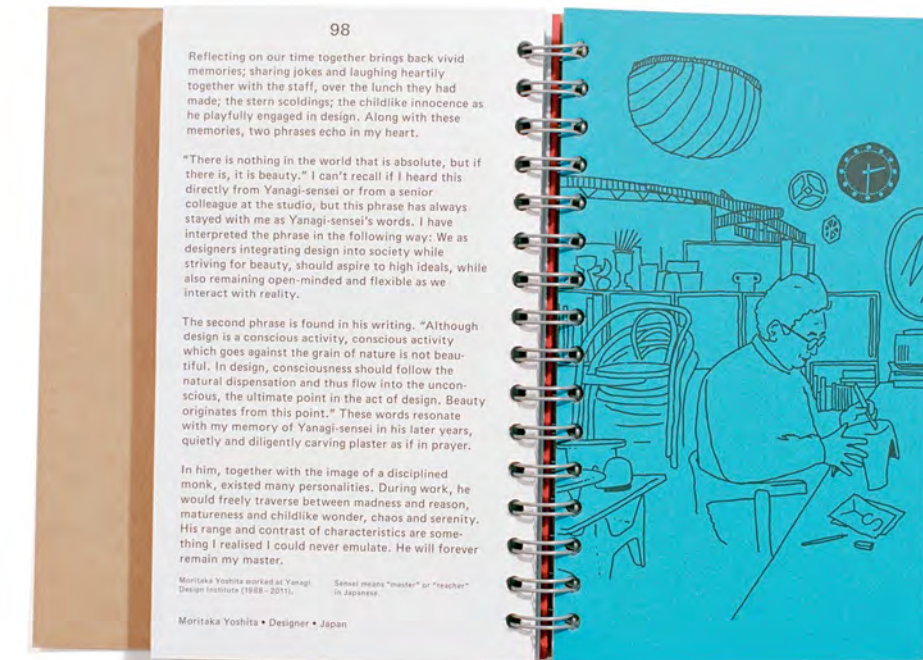 98
Reflecting on our time together brings back vivid
memories; sharing jokes and laughing heartily
together with the staff, over the lunch they had
made; the stern scoldings; the childlike innocence as
he playfully engaged in design. Along with these
memories, two phrases echo in my heart.
“There is nothing in the world that is absolute, but if
there is, it is beauty.” I can’t recall if I heard this
directly from Yanagi-sensei or from a senior
colleague at the studio, but this phrase has always
stayed with me as Yanagi-sensei’s words. I have
interpreted the phrase in the following way: We as
designers integrating design into society while
striving for beauty, should aspire to high ideals, while
also remaining open-minded and flexible as we
interact with reality.
The second phrase is found in his writing. “Although
design is a conscious activity, conscious activity
which goes against the grain of nature is not beau-
tiful. In design, consciousness should follow the
natural dispensation and thus flow into the uncon-
scious, the ultimate point in the act of design. Beauty
originates from this point.” These words resonate
with my memory of Yanagi-sensei in his later years,
quietly and diligently carving plaster as if in prayer.
In him, together with the image of a disciplined
monk, existed many personalities. During work, he
would freely traverse between madness and reason,
matureness and childlike wonder, chaos and serenity.
His range and contrast of characteristics are some-
thing I realised I could never emulate. He will forever
remain my master.
Moritaka Yoshita worked at Yanagi
Design Institute (1988 – 2011).
Sensei means “master” or “teacher”
in Japanese.
Moritaka Yoshita • Designer • Japan